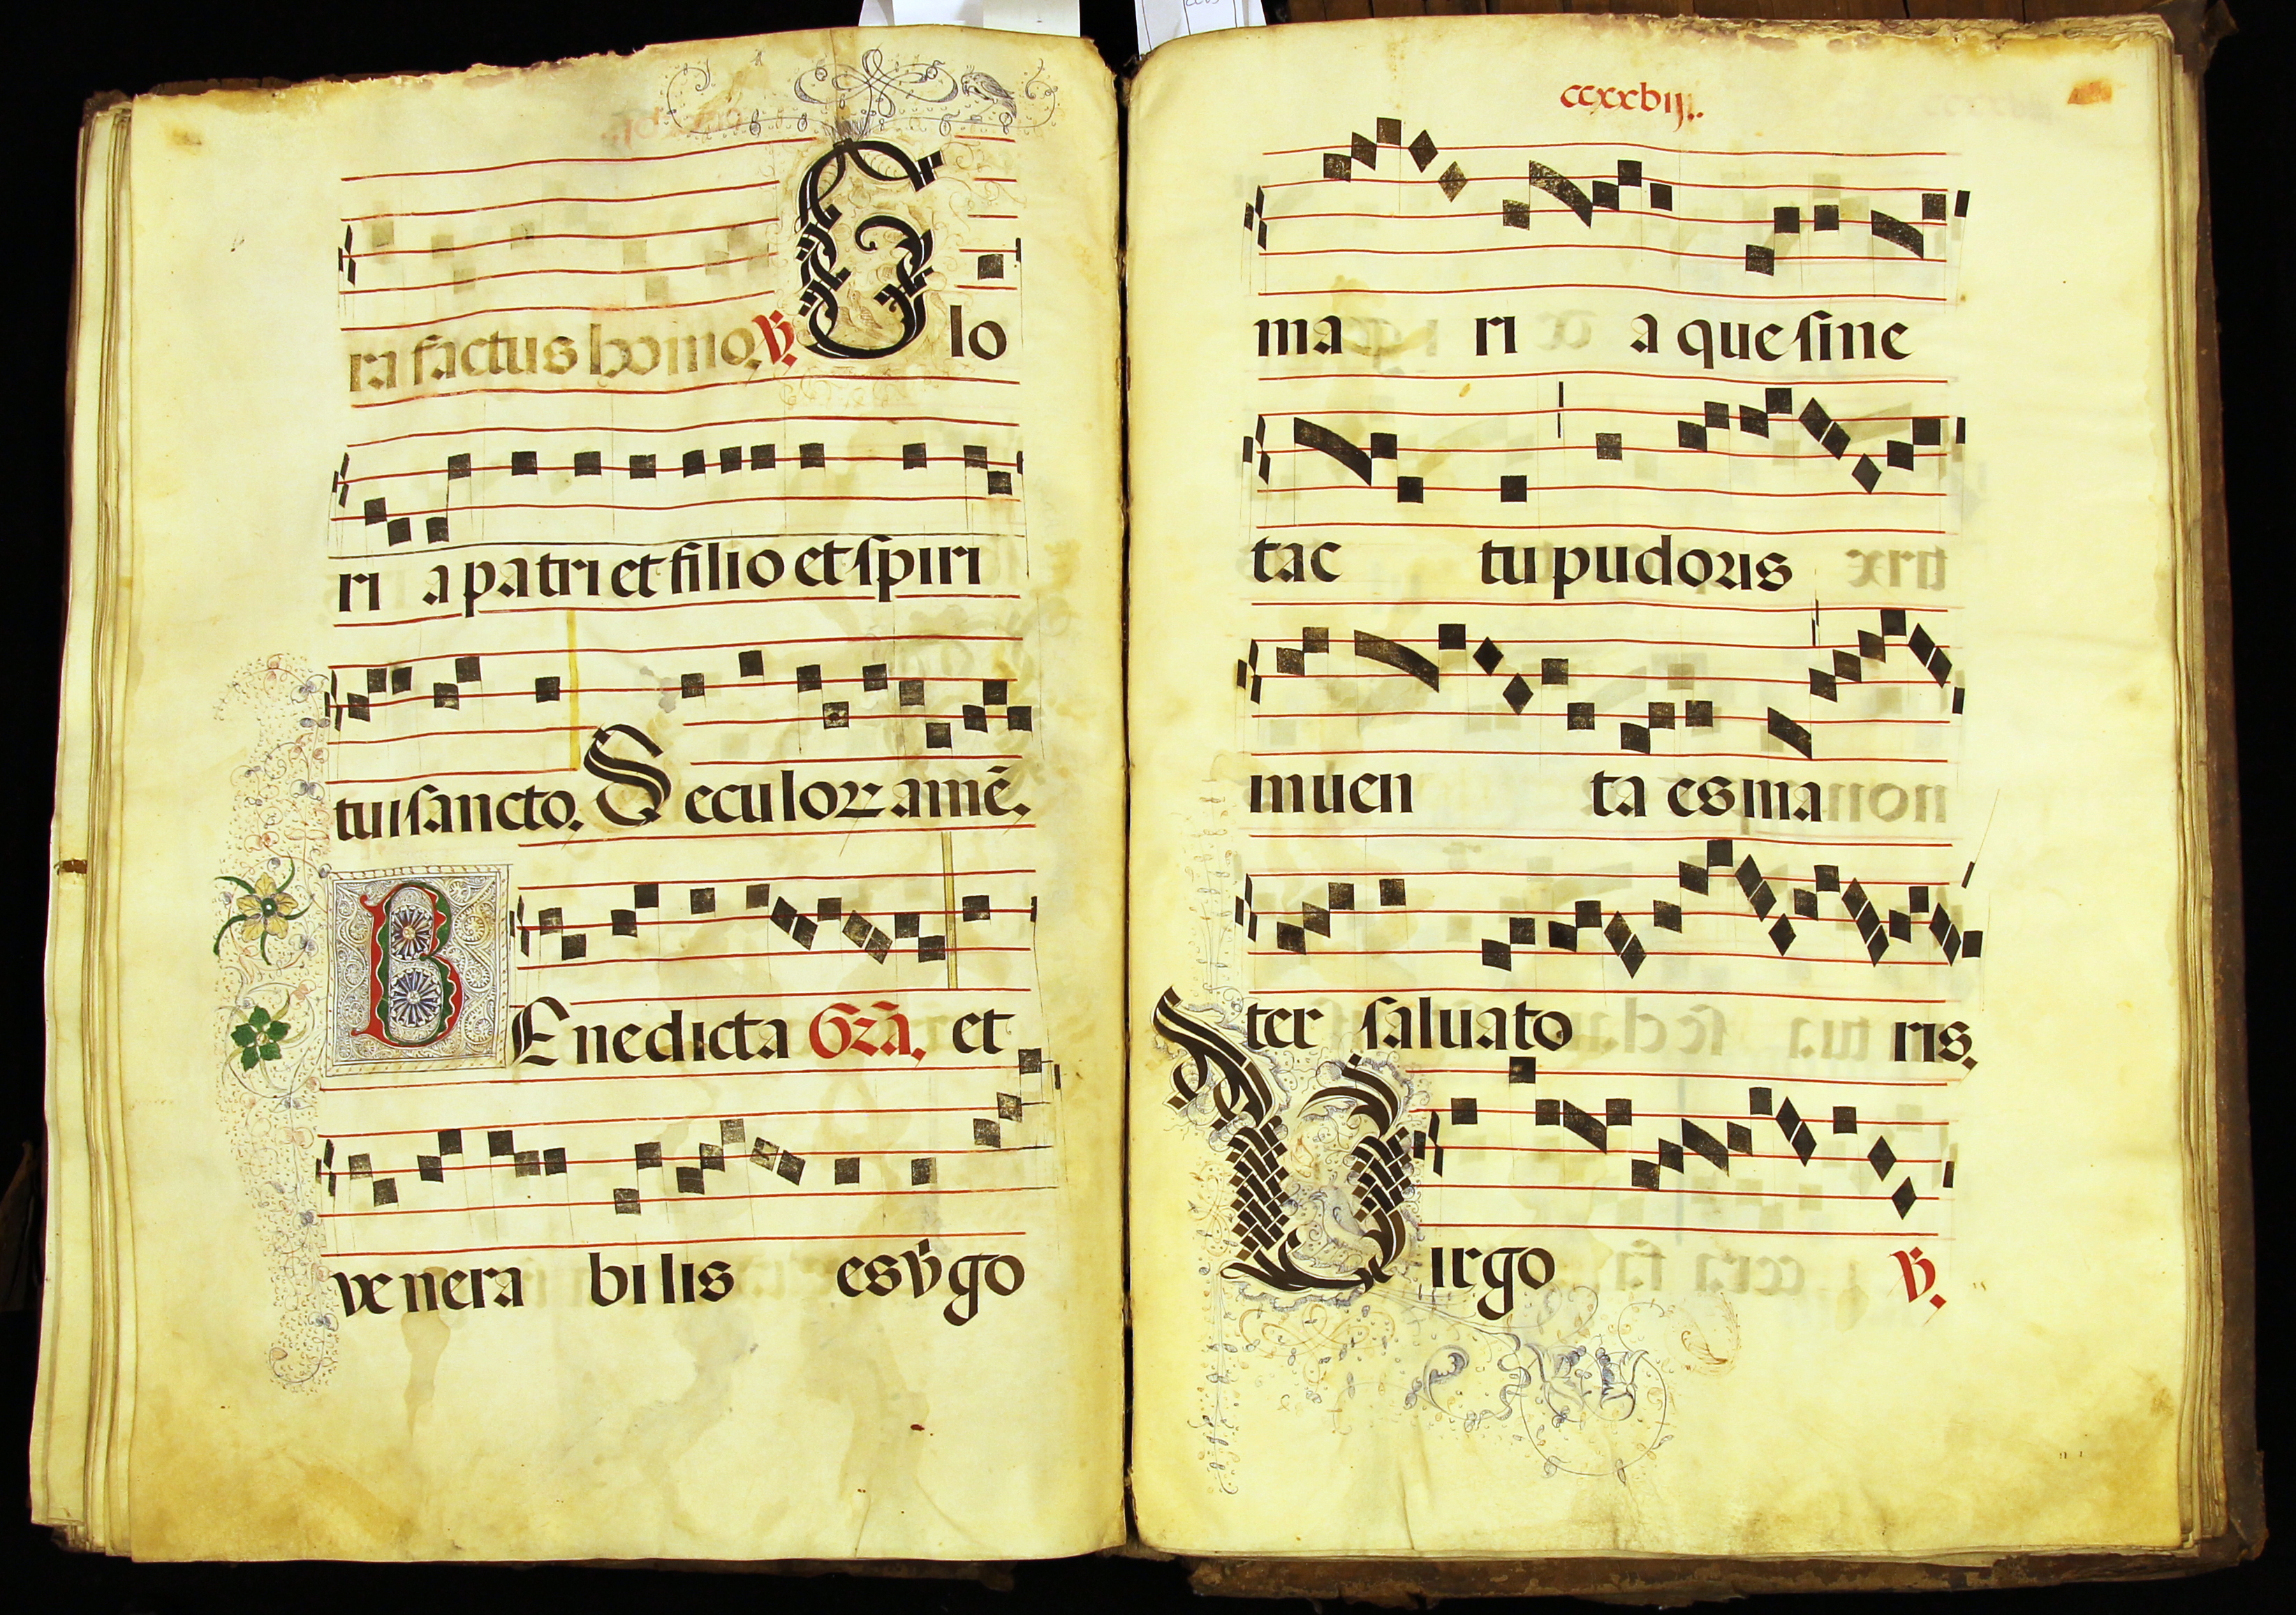 ra factus homo. V. Glo
ri a patri et filio et spiri
tui sancto. Seculoꝝ amē.
BEnedicta Gra͞. et
venera bilis es v̇go
ccxxviij.
ma ri a que sine
tac tu pudoris
inuen ta es ma
ter saluato ris.
Virgo V.